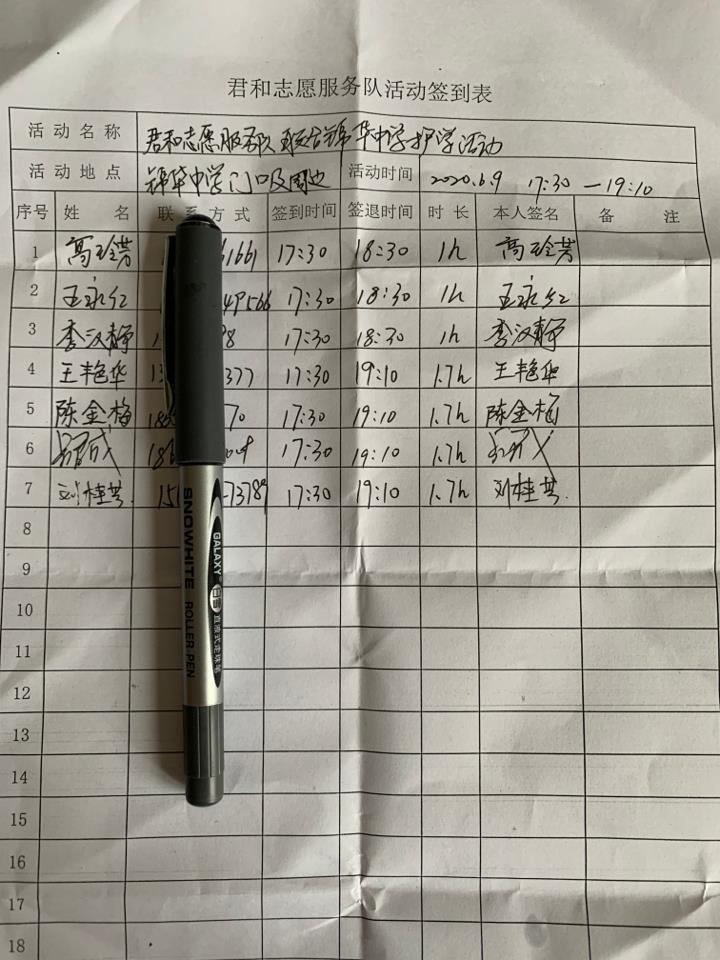 君和志愿服务队活动签到表
活动名称 君和志愿服务队联合锦华中学护学活动
活动地点 锦华中学门口及周边 活动时间 2020.6.9 17:30—19:10
序号 姓名 联系方式 签到时间 签退时间 时长 本人签名 备注
1 高玲芳 61661 17:30 18:30 1h 高玲芳
2 王永红 49566 17:30 18:30 1h 王永红
3 李汉静 98 17:30 18:30 1h 李汉静
4 王艳华 13 377 17:30 19:10 1.7h 王艳华
5 陈金梅 70 17:30 19:10 1.7h 陈金梅
6 17:30 19:10 1.7h
7 刘桂芸 15 73789 17:30 19:10 1.7h 刘桂芸
8
9
10
11
12
13
14
15
16
17
18
SNOWHITE ROLLER PEN
GALAXY 白雪 直液式走珠笔